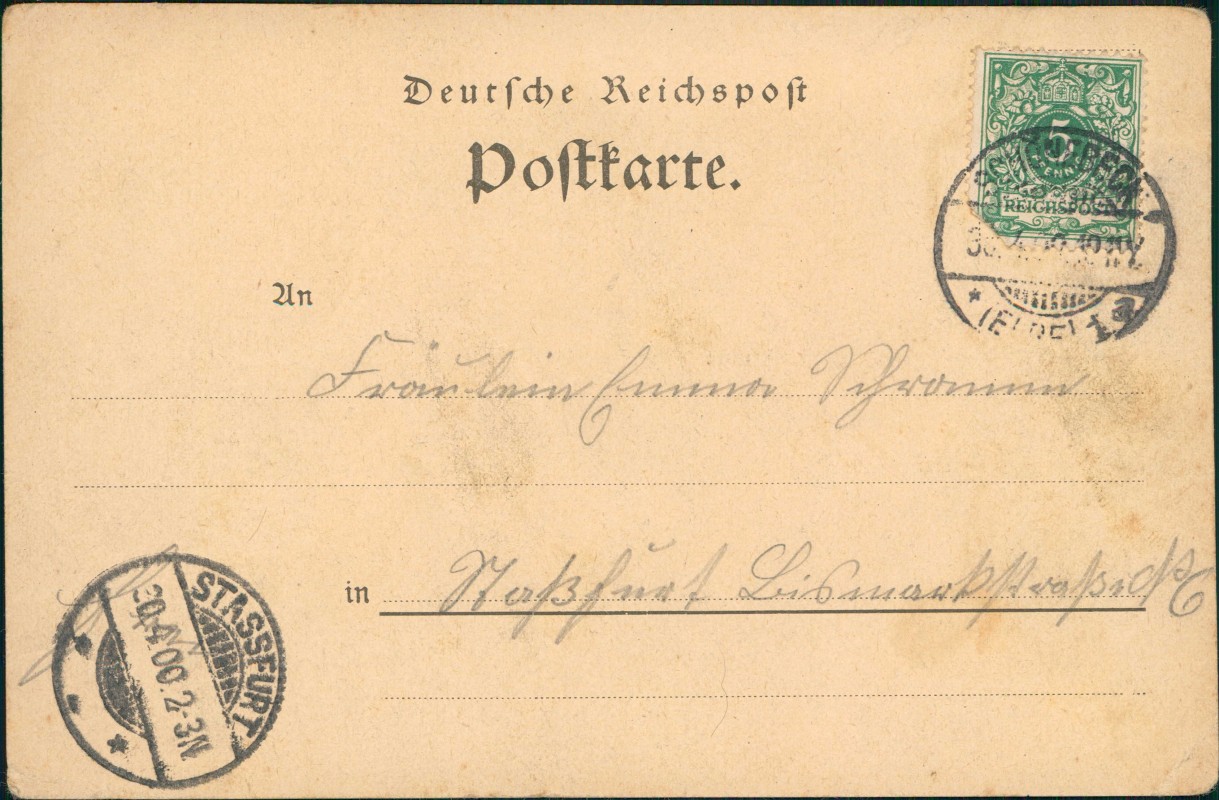 Deutsche Reichspost
Postkarte.
5
PFENNIG
REICHSPOST
(ELBE)
An
Fräulein Emma Schramm
in Staßfurt Bismarkstraße
STASSFURT
30.4.00.2-3N.